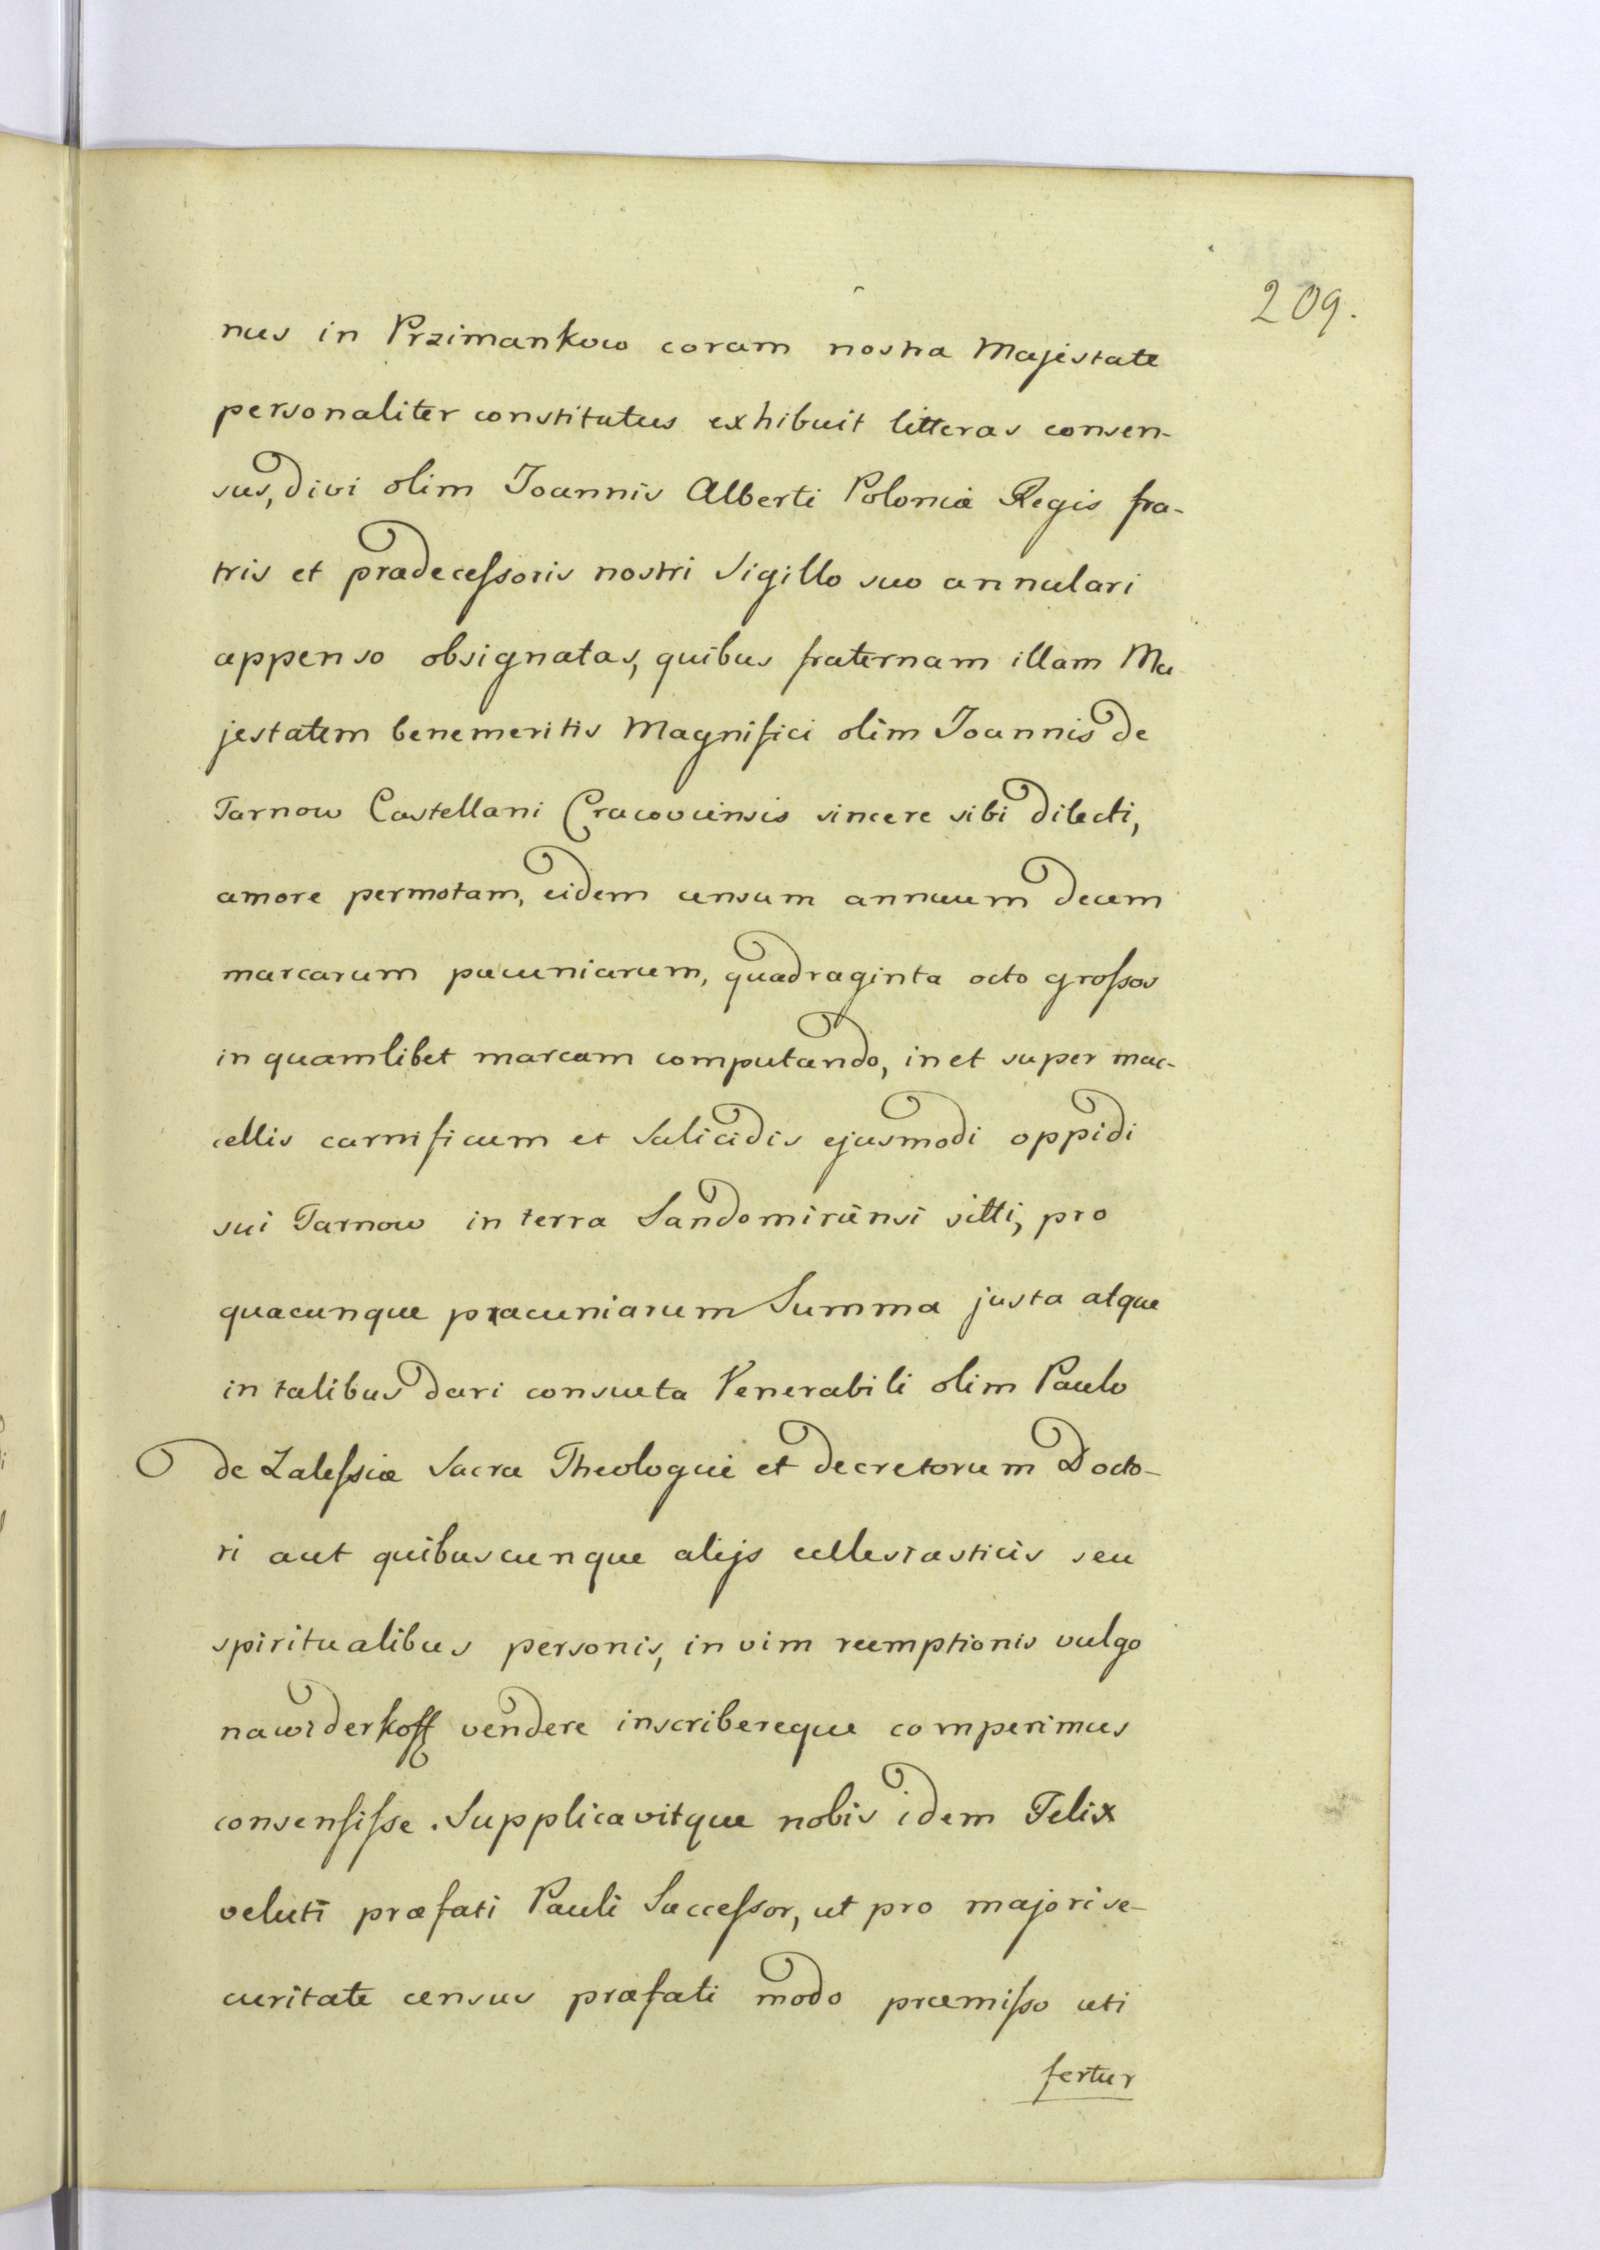 209.
nus in Przimankow coram nostra Majestate
personaliter constitutus exhibuit litteras consen-
sus, divi olim Joannis Alberti Poloniæ Regis fra-
tris et prædecessoris nostri Sigillo suo annulari
appenso obsignatas, quibus fraternam illam Ma
jestatem benemeritis Magnifici olim Joannis de
Tarnow Castellani Cracoviensis sincere sibi dilecti,
amore permotam, eidem censum annuum decem
marcarum pecuniarum, quadraginta octo grossos
in quamlibet marcam computando, in et super mac-
cellis carnificum et Salicidis ejusmodi oppidi
sui Tarnow in terra Sandomiriensi sitti, pro
quacunque pæcuniarum Summa justa atque
in talibus dari consueta Venerabili olim Paulo
de Zalessiæ Sacræ Theologiæ et decretorum Docto-
ri aut quibuscunque alijs ecclesiasticis seu
spiritualibus personis, in vim reemptionis vulgo
nawiderkoff vendere inscribereque comperimus
consensisse. Supplicavitque nobis idem Felix
veluti præfati Pauli Successor, ut pro majori se-
curitate census præfati modo præmisso uti
fertur